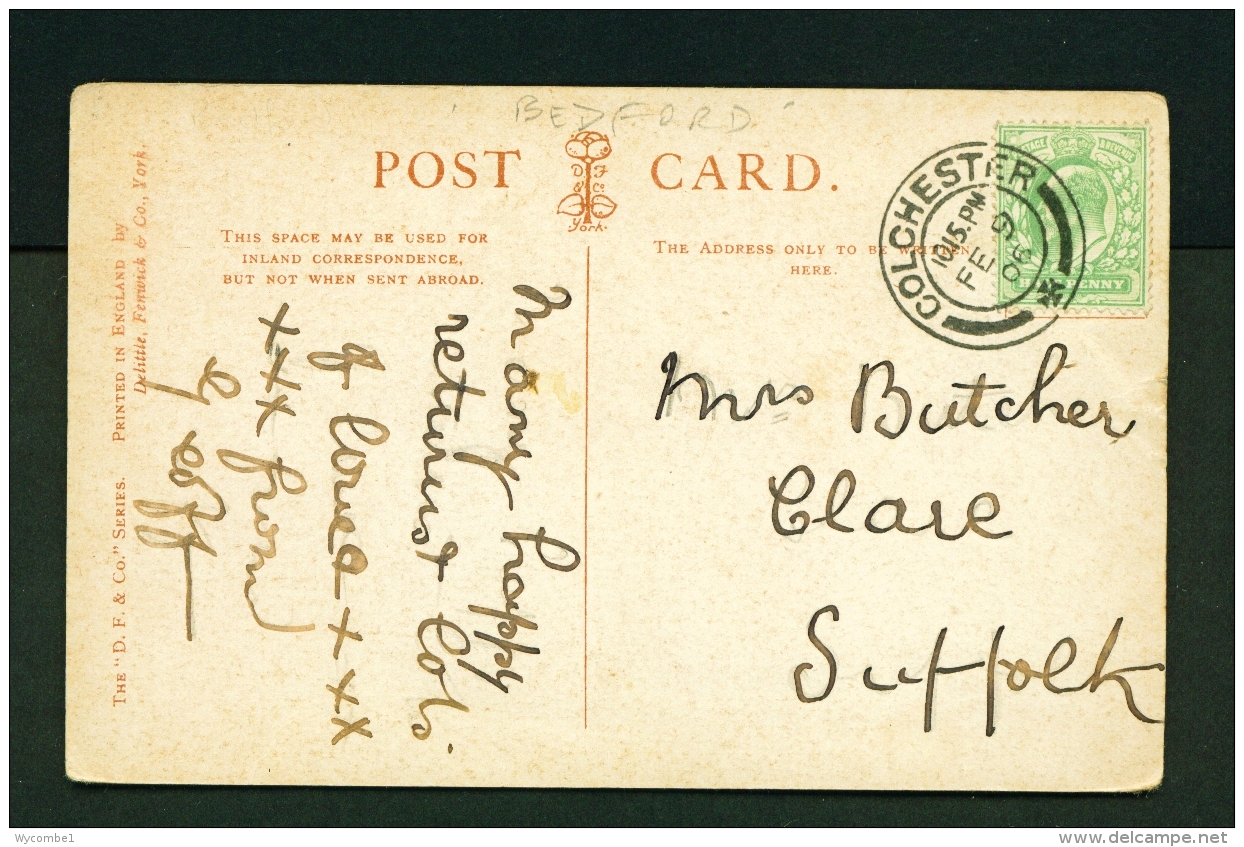 BEDFORD
POST CARD.
D F
& Co.
York.
THIS SPACE MAY BE USED FOR
INLAND CORRESPONDENCE,
BUT NOT WHEN SENT ABROAD.
THE ADDRESS ONLY TO BE WRITTEN
HERE.
COLCHESTER
10.15.PM
FE 9
06
POSTAGE & REVENUE
HALFPENNY
Many happy
returns & lots
of love x x x x
x x x x from
G
Mrs Butcher
Clare
Suffolk
THE "D. F. & CO." SERIES. PRINTED IN ENGLAND by
Delittle, Fenwick & Co., York.
Wycombe1
www.delcampe.net